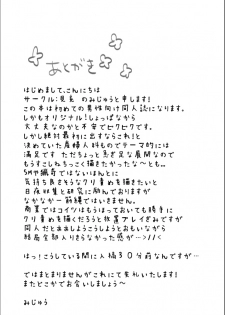 あとがき
はじめまして、こんにちは
サークル:見長 のみじゅうと申します!
この本は初めての男性向け同人誌になります。
しかもオリジナル!しょっぱなから
大丈夫なのかと不安でビクビクです。
しかし絶対最初に出すならこれ!と
決めていた産婦人科ものでテーマ的には
満足です ただちょっと急ぎ足な展開なので
もうすこしねちっこく描きたかったな～とも。。
SMや鬼畜ではないほんとに
気持ち良さそうなクリ責めを描きたいと
日夜 と研究に励んでますが
なかなか一筋縄ではいきません。
商業ではコイツはもうほっておいても勝手に
クリ責めを描くだろうと放置プレイぎみですが
同人だとああしようこうしようとおもいながら
結局全部入りきらなかった感が…>//<
はっ!こうしている間に入稿30分前なんですが…
ではまとまりませんがこれにて失礼いたします!
またどこかでお会いしましょう～
みじゅう